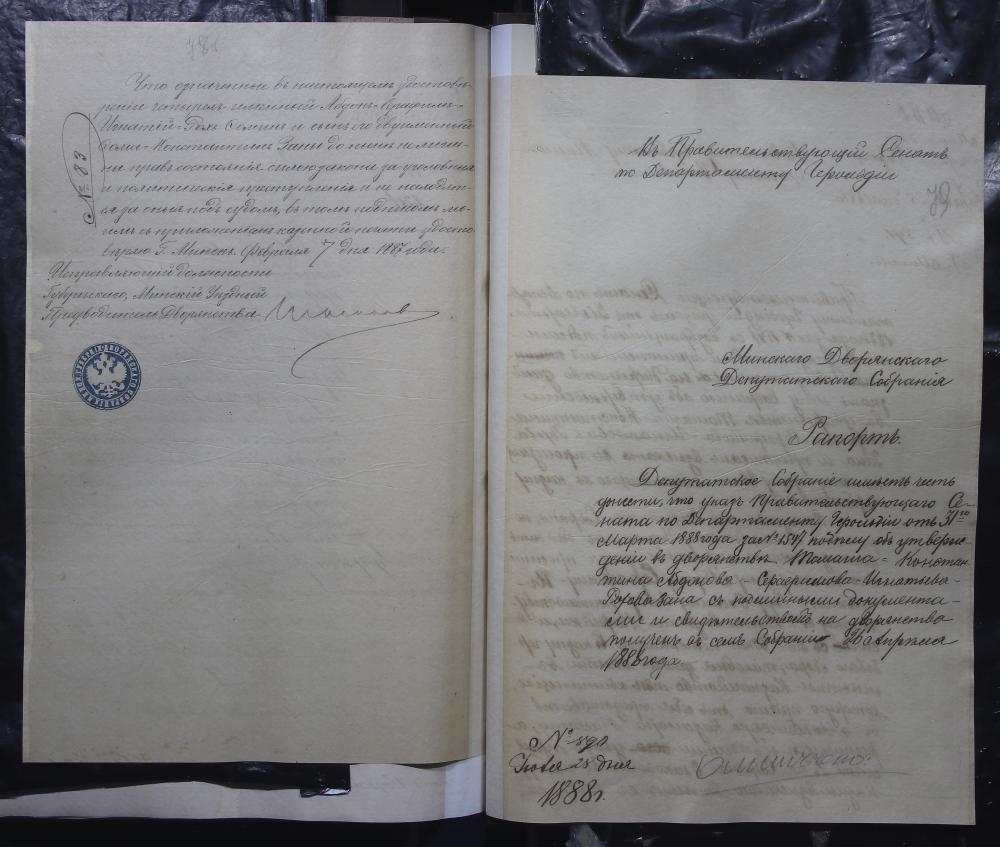 78
№ 83
Что означенные въ настоящемъ удостовѣ-
реніи четырехъ-именный Абдонъ-Серафимъ-
Игнатій-Рохъ Семинъ и сынъ его двуименный
Ѳома-Константинъ Заны до нынѣ не лише-
ны правъ состоянія силою закона за уголовныя
и политическія преступленія и не находят-
ся за оныя подъ судомъ, въ томъ подписомъ мо-
имъ съ приложеніемъ казенной печати удосто-
вѣряю Г. Минскъ. Февраля 7 дня 1887 года.
Исправляющій должность
Губернскаго, Минскій Уѣздный
Предводитель Дворянства
Въ Правительствующій Сенатъ
по Департаменту Герольдіи
79
Минскаго Дворянскаго
Депутатскаго Собранія
Рапортъ.
Депутатское Собраніе имѣетъ честь
донести, что указъ Правительствующаго Се-
ната по Департаменту Герольдіи отъ 31го
Марта 1888 года за № 1547 по дѣлу объ утверж-
деніи въ дворянствѣ Томаша-Констан-
тина Абдонова-Серафимова-Игнатьева-
Рохова Зана съ подлинными документа-
ми и свидѣтельствомъ на дворянство
полученъ въ семъ Собраніи 26 апрѣля
1888 года.
№
дня
1888 г.